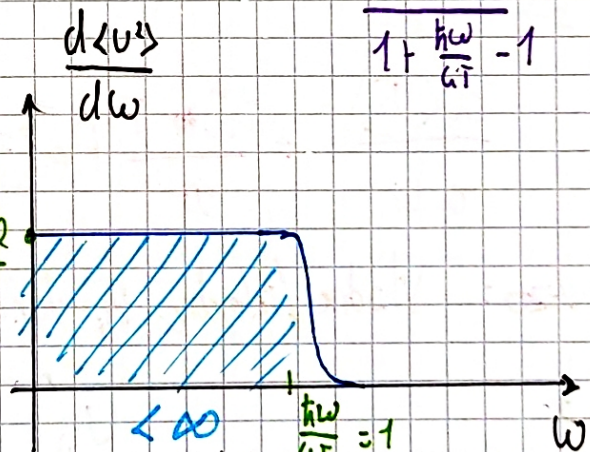 d<U²>
dω
1 + ħω/kT - 1
R
< ∞
ħω/kT = 1
ω